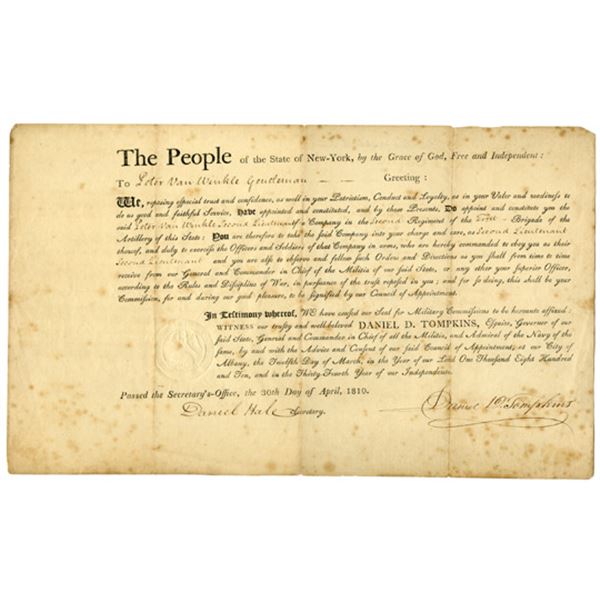 The People of the State of New-York, by the Grace of God, Free and Independent:
To Peter Van Winkle Gentleman Greeting:
We, reposing eſpecial truſt and confidence, as well in your Patriotiſm, Conduct and Loyalty, as in your Valor and readineſs to
do us good and faithful Service, Have appointed and conſtituted, and by theſe Preſents, Do appoint and conſtitute you the
ſaid Peter Van Winkle Second Lieutenant of a Company in the Second Regiment of the Firſt Brigade of the
Artillery of this State: You are therefore to take the ſaid Company into your charge and care, as Second Lieutenant
thereof, and duly to exerciſe the Officers and Soldiers of that Company in arms, who are hereby commanded to obey you as their
Second Lieutenant and you are alſo to obſerve and follow ſuch Orders and Directions as you ſhall from time to time
receive from our General and Commander in Chief of the Militia of our ſaid State, or any other your Superior Officer,
according to the Rules and Diſcipline of War, in purſuance of the truſt repoſed in you; and for ſo doing, this ſhall be your
Commiſſion, for and during our good pleaſure, to be ſignified by our Council of Appointment.
In Testimony whereof, We have cauſed our Seal for Military Commiſſions to be hereunto affixed:
WITNESS our truſty and well-beloved DANIEL D. TOMPKINS, Eſquire, Governor of our
ſaid State, General and Commander in Chief of all the Militia, and Admiral of the Navy of the
ſame, by and with the Advice and Conſent of our ſaid Council of Appointment, at our City of
Albany, the Twelfth Day of March, in the Year of our Lord One Thouſand Eight Hundred
and Ten, and in the Thirty-Fourth Year of our Independence.
Paſſed the Secretary's-Office, the 30th Day of April, 1810.
Daniel Hale Secretary. Daniel D. Tompkins